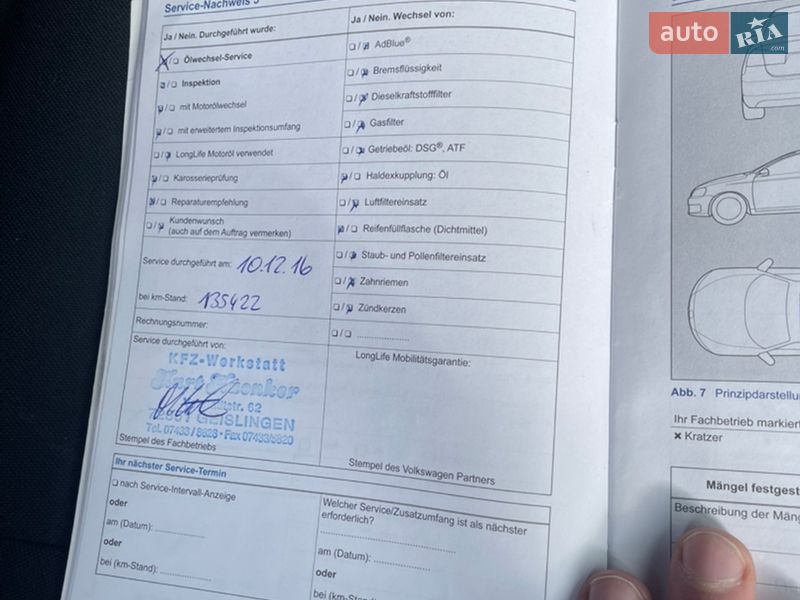 Service-Nachweis 5
Ja / Nein. Durchgeführt wurde:
Ölwechsel-Service
Inspektion
mit Motorölwechsel
mit erweitertem Inspektionsumfang
LongLife Motoröl verwendet
Karosserieprüfung
Reparaturempfehlung
Kundenwunsch
(auch auf dem Auftrag vermerken)
Service durchgeführt am: 10.12.16
bei km-Stand: 135422
Rechnungsnummer:
Service durchgeführt von:
KFZ-Werkstatt
62
GEISLINGEN
Tel. 07433/8628 • Fax 07433/5820
Stempel des Fachbetriebs
Ja / Nein. Wechsel von:
AdBlue®
Bremsflüssigkeit
Dieselkraftstofffilter
Gasfilter
Getriebeöl: DSG®, ATF
Haldexkupplung: Öl
Luftfiltereinsatz
Reifenfüllflasche (Dichtmittel)
Staub- und Pollenfiltereinsatz
Zahnriemen
Zündkerzen
LongLife Mobilitätsgarantie:
Stempel des Volkswagen Partners
Ihr nächster Service-Termin
nach Service-Intervall-Anzeige
oder
am (Datum):
oder
bei (km-Stand):
Welcher Service/Zusatzumfang ist als nächster
erforderlich?
am (Datum):
oder
bei (km-Stand
Abb. 7 Prinzipdarstellu
Ihr Fachbetrieb markier
× Kratzer
Mängel festgest
Beschreibung der Mäng
auto RIA
.com